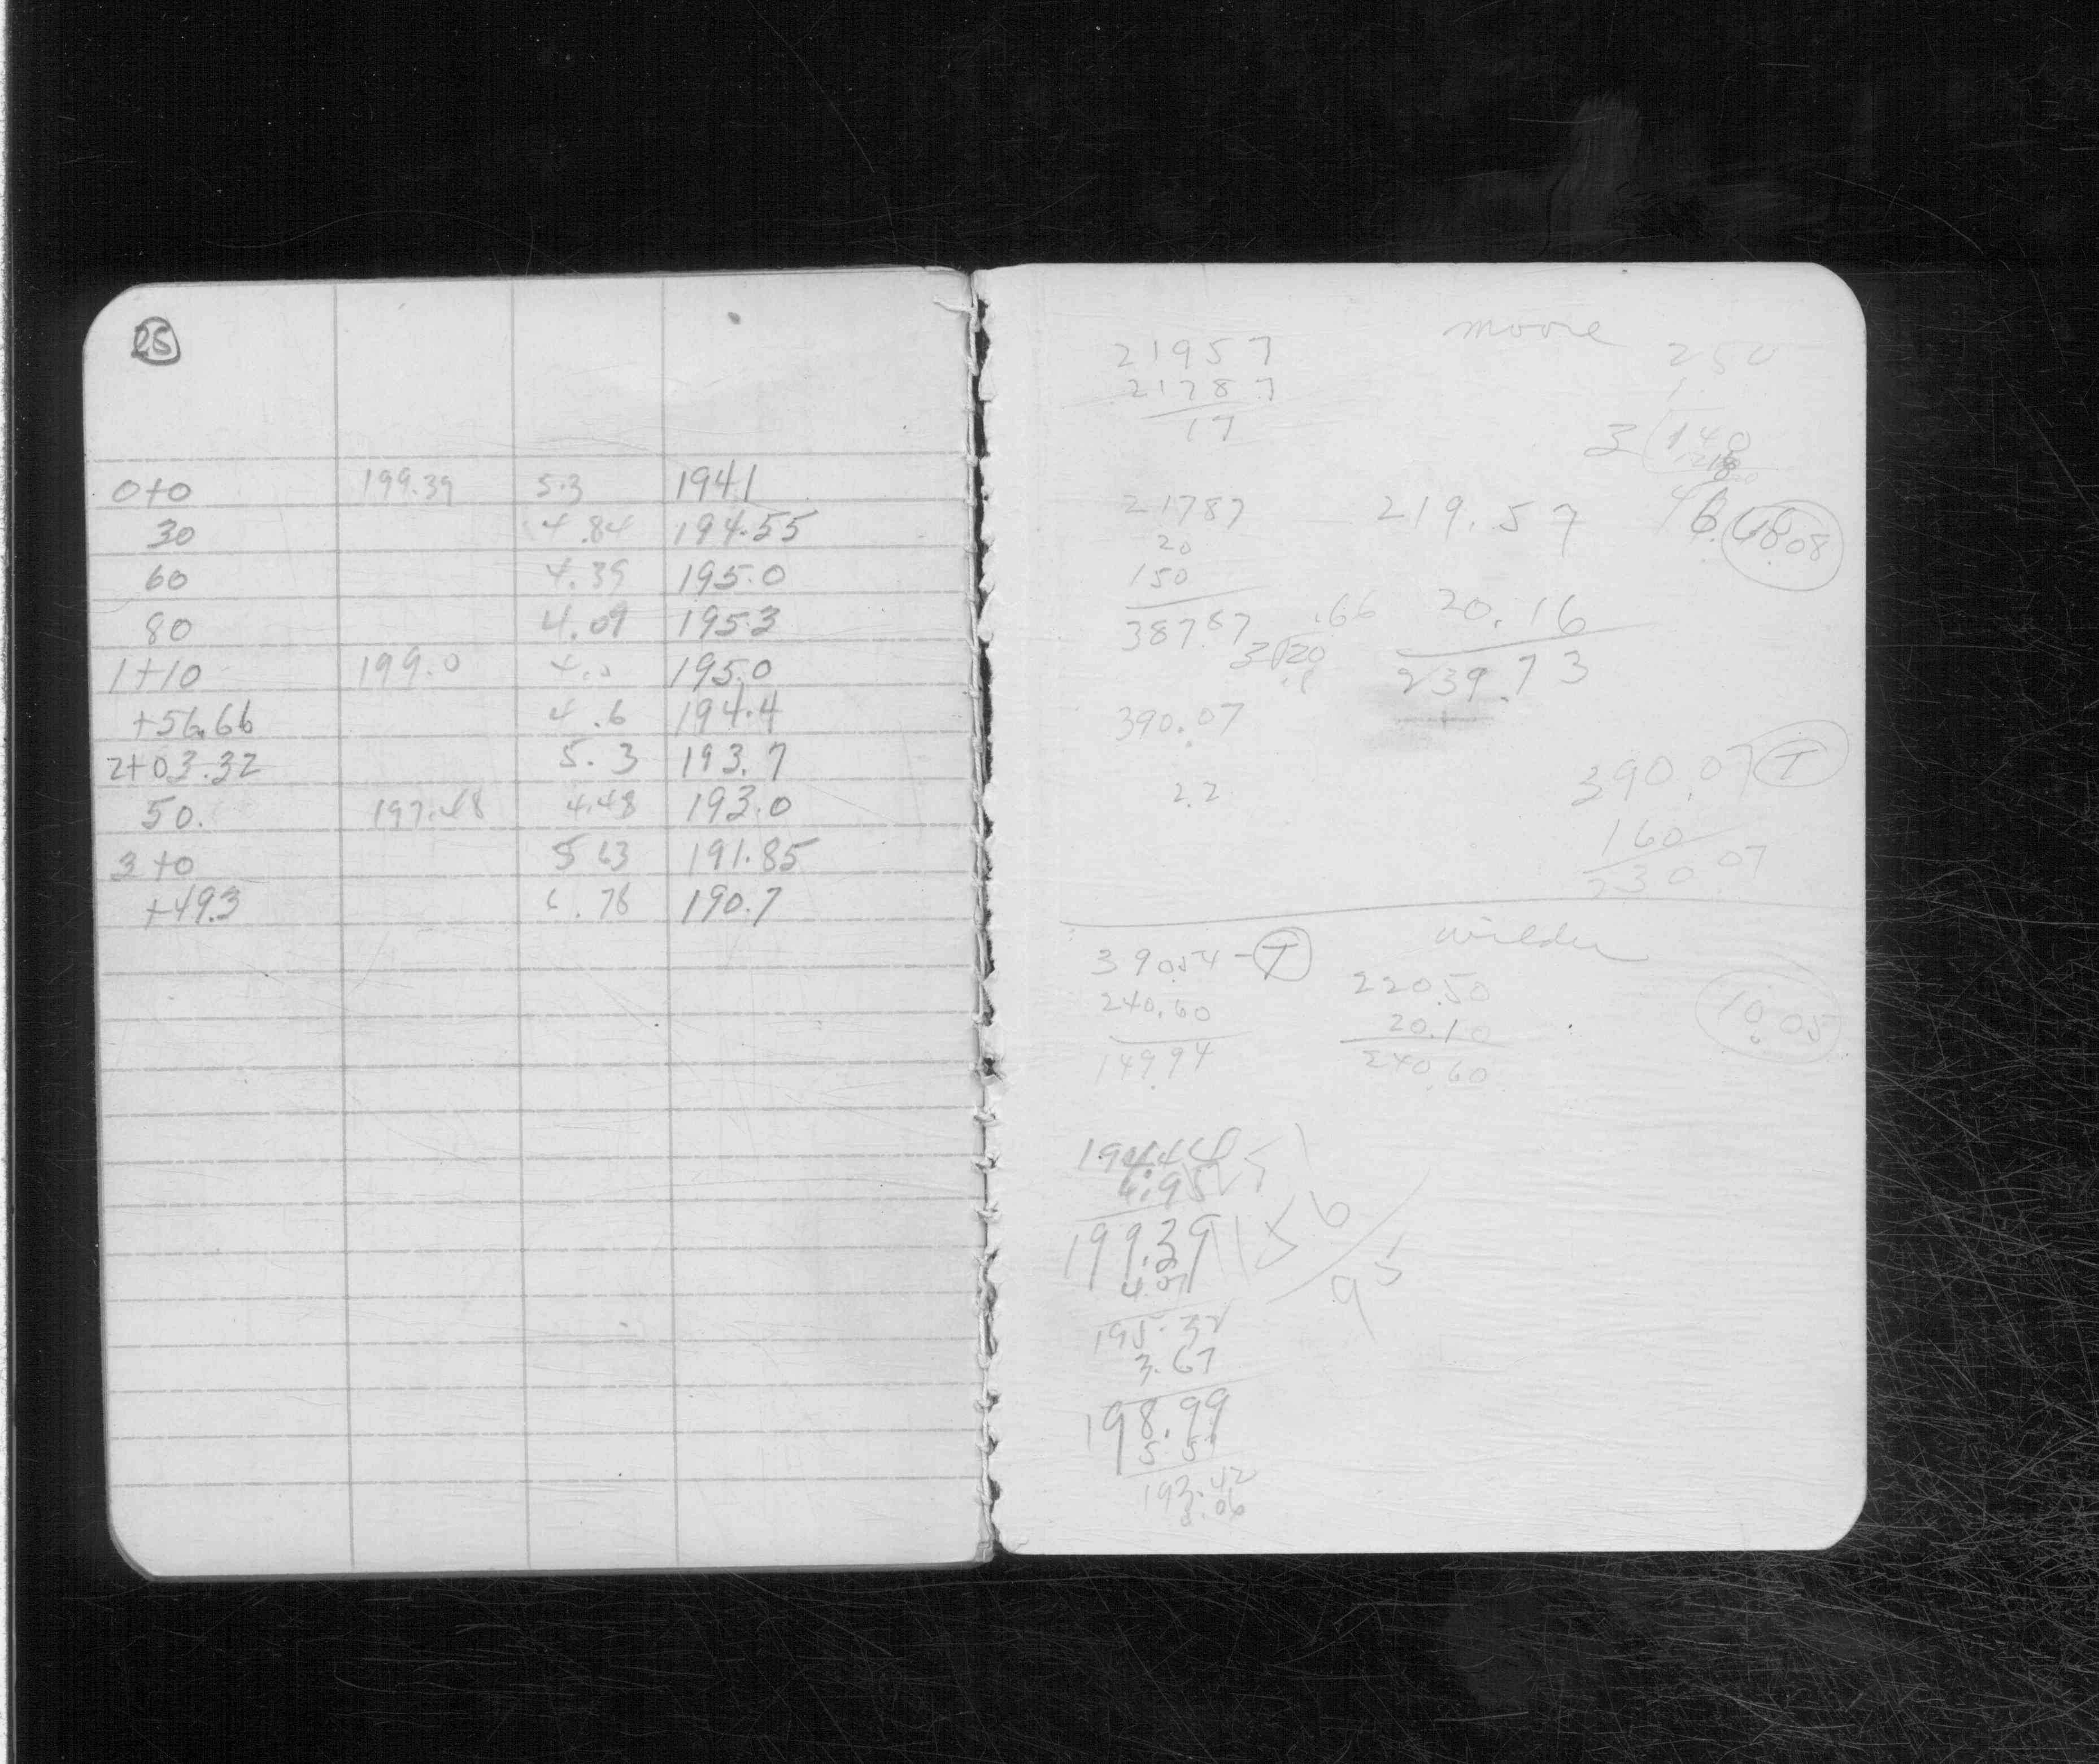 25
0+0 199.39 5.3 194.1
30 4.84 194.55
60 4.39 195.0
80 4.09 195.3
1+10 199.0 4.0 195.0
+56.66 4.6 194.4
2+03.32 5.3 193.7
50. 197.48 4.48 193.0
3+0 5 63 191.85
+49.3 6.78 190.7
moore
21957
21787
17
250
3 140
21787
20
150
38787
219.57
20.16
239.73
.66
3 20
10.08
390.07
2.2
390.07 T
160
230 07
wilder
390.54 - T
240.60
149.94
220.50
20.10
240.60
10.05
194.44
4.95
199.39
4.07
195.32
3.67
198.99
5 57
193.42